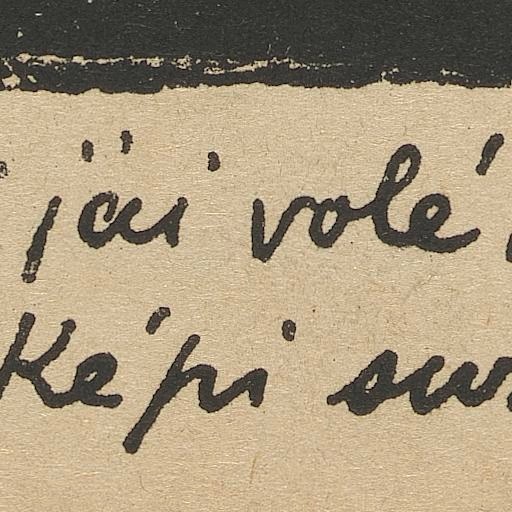 j'ai volé
Képi sur